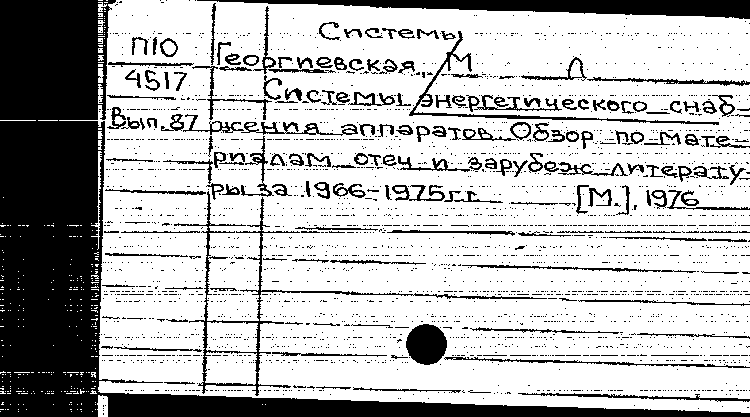 Системы
П10
Георгиевская, М Л
4517
Системы энергетического снаб-
Вып. 87 жения аппаратов. Обзор по мате-
риалам отеч и зарубеж литерату-
ры за 1966-1975гг. [М.], 1976